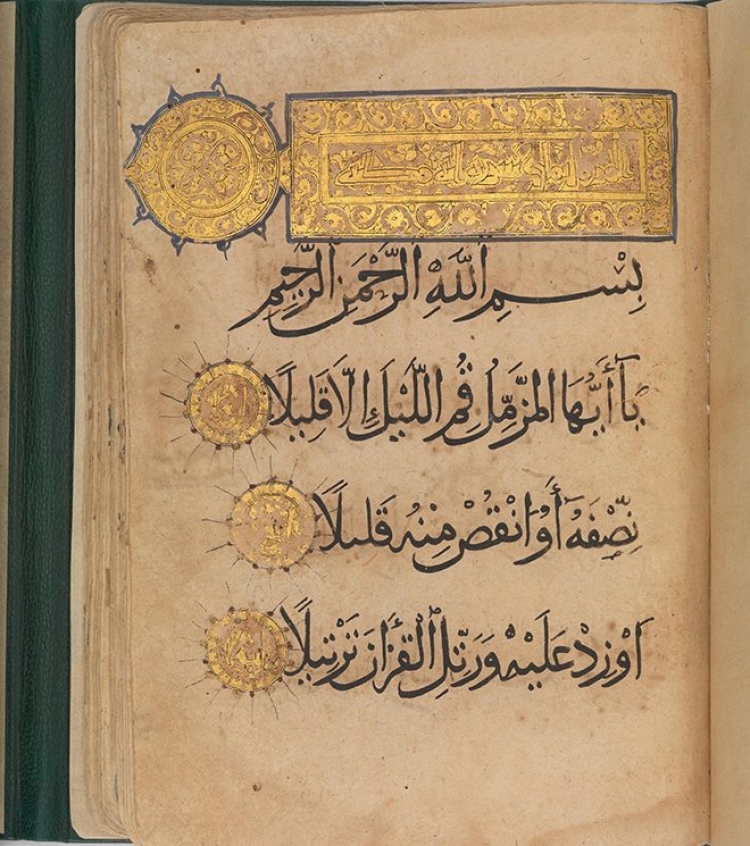 بِسْمِ اللهِ الرَّحْمَنِ الرَّحِيمِ
يَآ أَيُّهَا المُزَّمِّلُ قُمِ اللَّيْلَ إِلَّا قَلِيلًا
نِّصْفَهُ أَوْ انْقُصْ مِنْهُ قَلِيلًا
اَوْ زِدْ عَلَيْهِ وَرَتِّلِ الْقُرْأَنَ تَرْتِيلًا